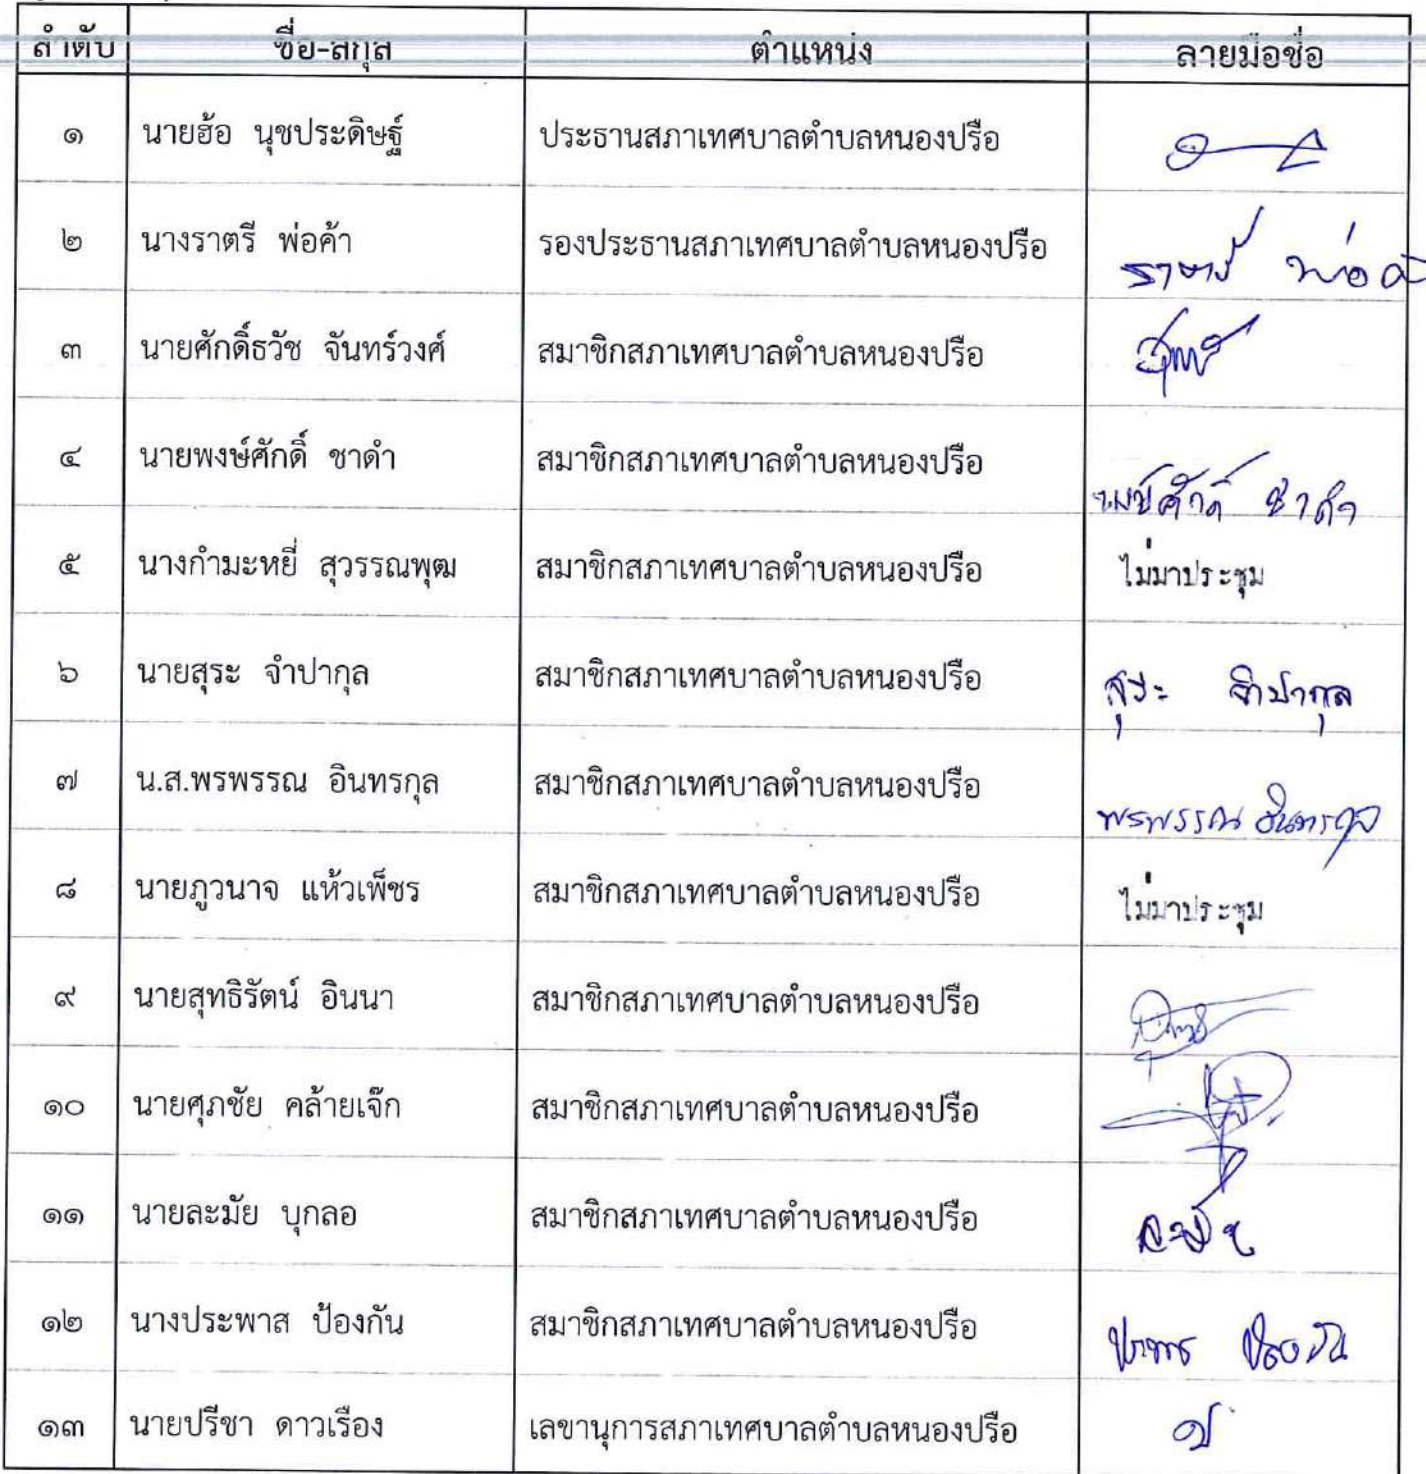 ลำดับ ชื่อ-สกุล ตำแหน่ง ลายมือชื่อ
๑ นายฮ้อ นุชประดิษฐ์ ประธานสภาเทศบาลตำบลหนองปรือ
๒ นางราตรี พ่อค้า รองประธานสภาเทศบาลตำบลหนองปรือ ราตรี พ่อค้า
๓ นายศักดิ์ธวัช จันทร์วงศ์ สมาชิกสภาเทศบาลตำบลหนองปรือ
๔ นายพงษ์ศักดิ์ ชาดำ สมาชิกสภาเทศบาลตำบลหนองปรือ พงษ์ศักดิ์ ชาดำ
๕ นางกำมะหยี่ สุวรรณพุฒ สมาชิกสภาเทศบาลตำบลหนองปรือ ไม่มาประชุม
๖ นายสุระ จำปากุล สมาชิกสภาเทศบาลตำบลหนองปรือ สุระ จำปากุล
๗ น.ส.พรพรรณ อินทรกุล สมาชิกสภาเทศบาลตำบลหนองปรือ พรพรรณ อินทรกุล
๘ นายภูวนาจ แห้วเพ็ชร สมาชิกสภาเทศบาลตำบลหนองปรือ ไม่มาประชุม
๙ นายสุทธิรัตน์ อินนา สมาชิกสภาเทศบาลตำบลหนองปรือ
๑๐ นายศุภชัย คล้ายเจ๊ก สมาชิกสภาเทศบาลตำบลหนองปรือ
๑๑ นายละมัย บุกลอ สมาชิกสภาเทศบาลตำบลหนองปรือ ละมัย
๑๒ นางประพาส ป้องกัน สมาชิกสภาเทศบาลตำบลหนองปรือ ประพาส ป้องกัน
๑๓ นายปรีชา ดาวเรือง เลขานุการสภาเทศบาลตำบลหนองปรือ